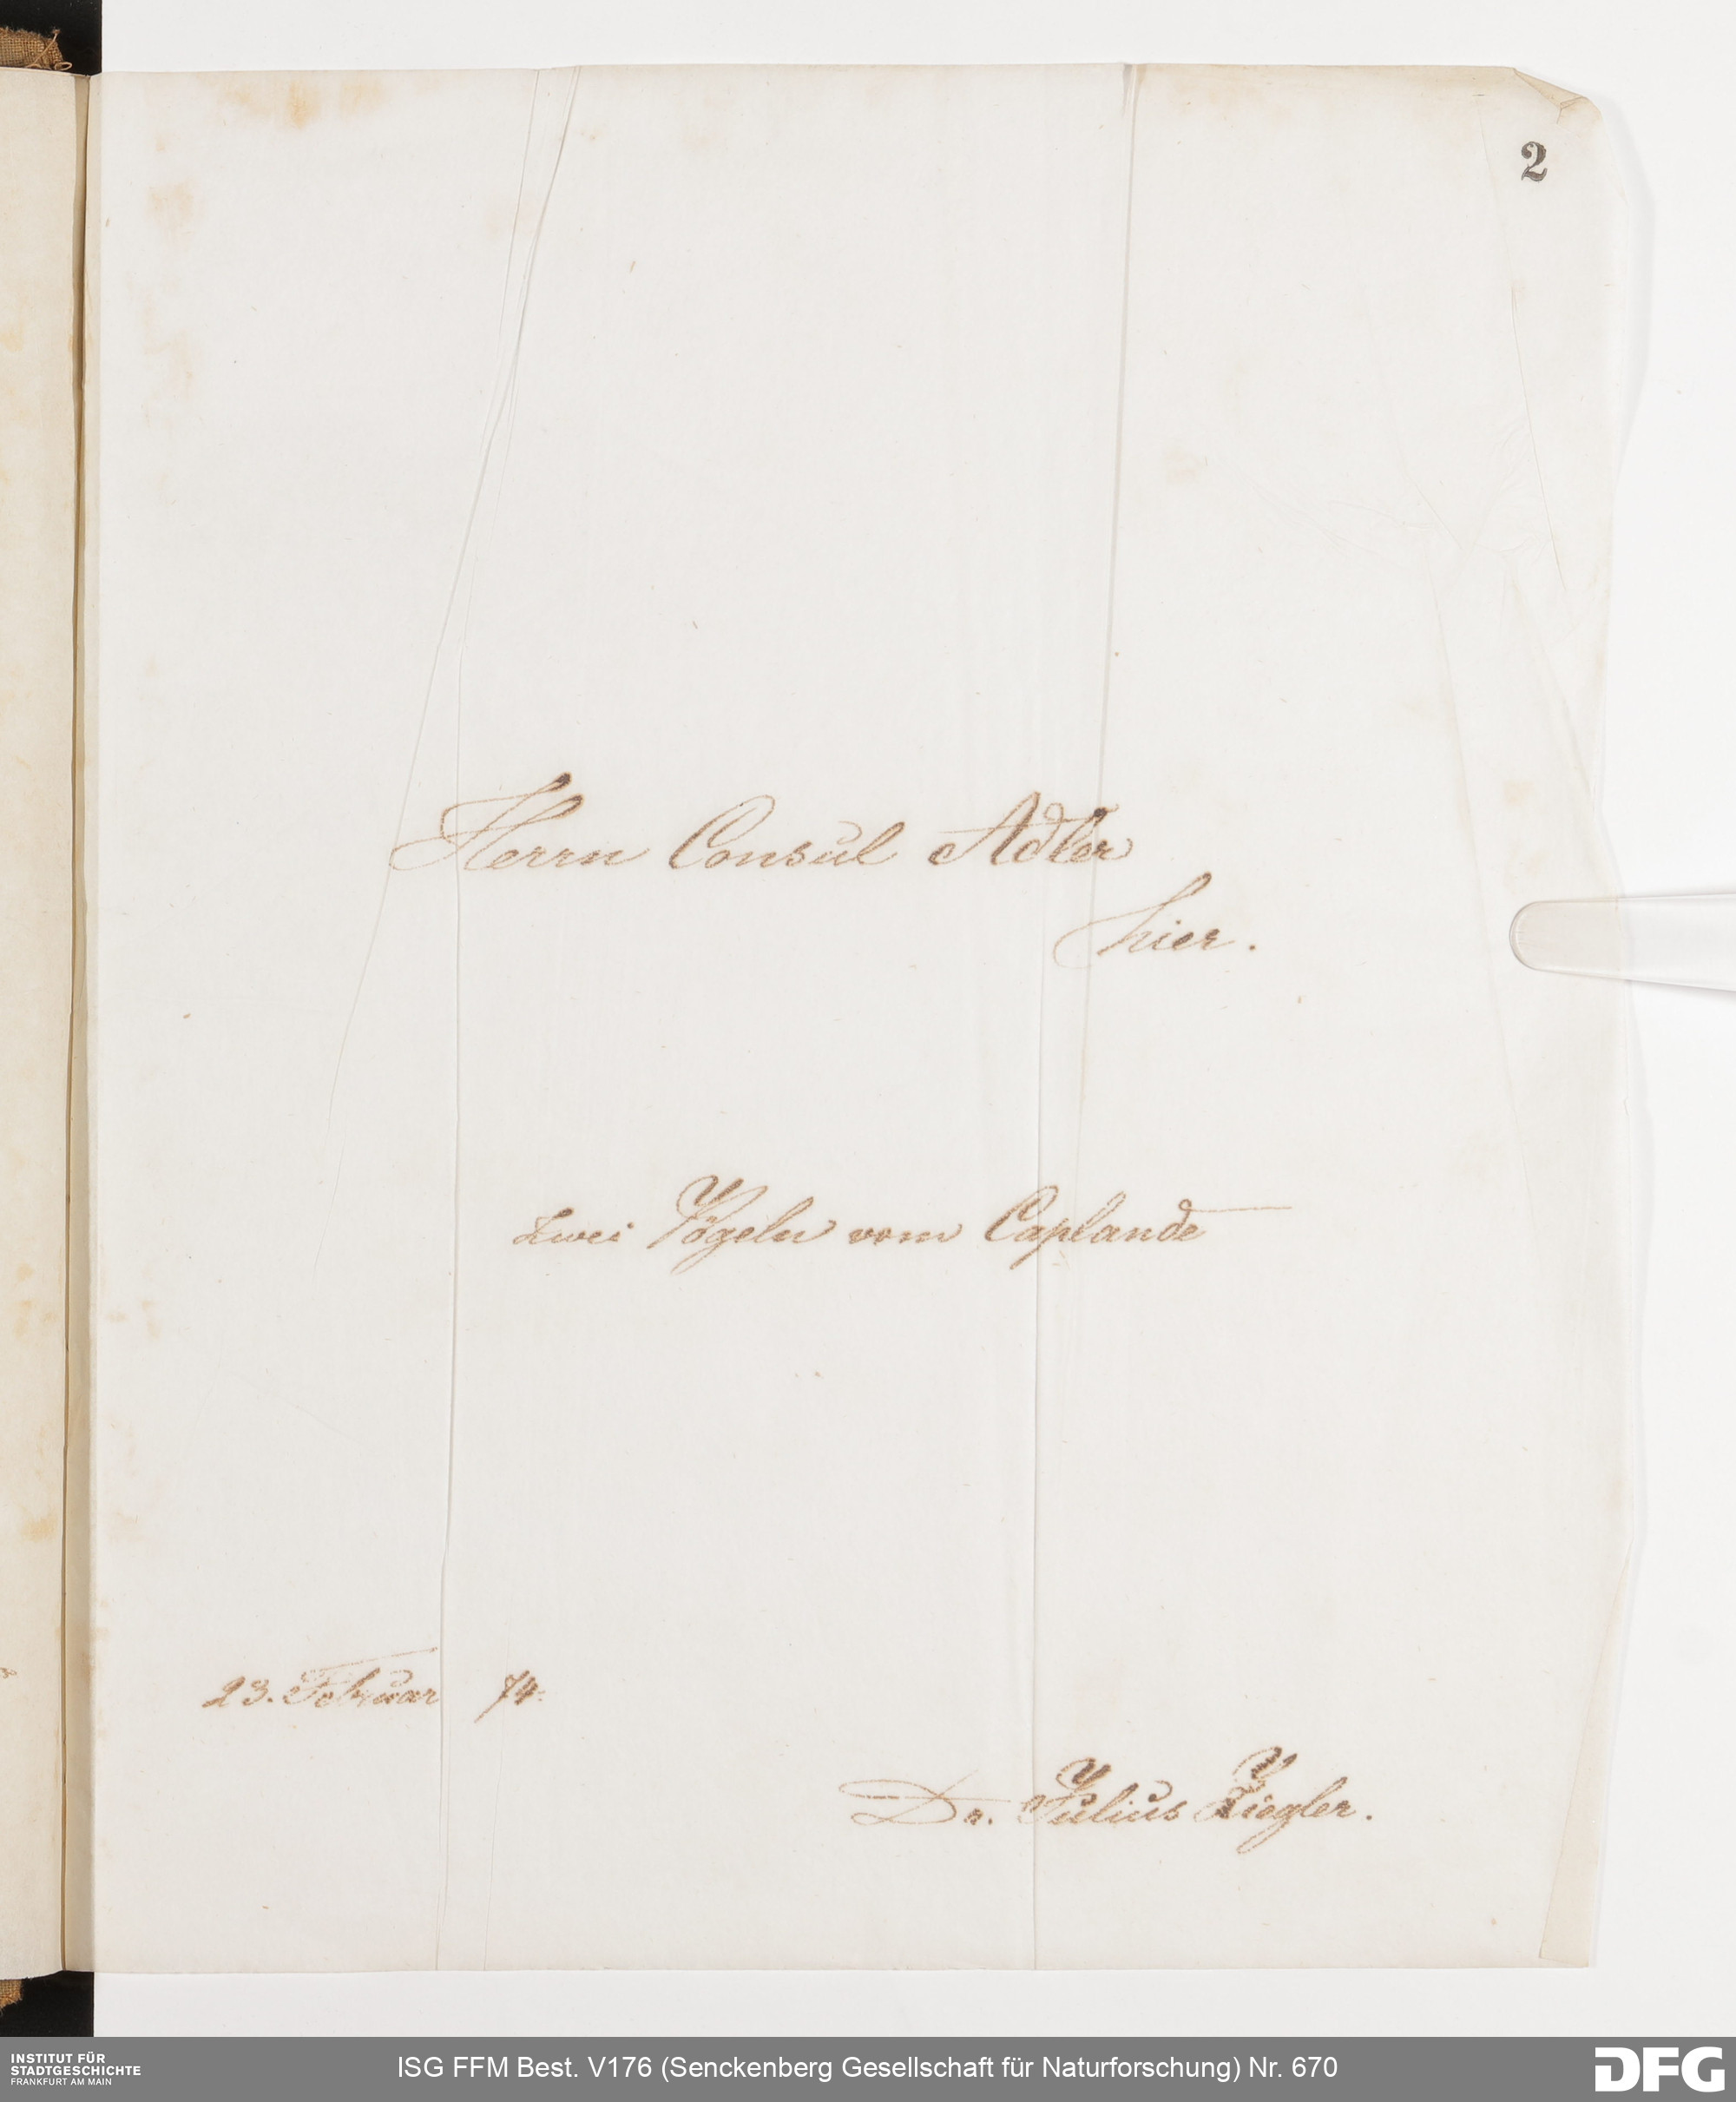 2
Herrn Consul Adler
hier.
zwei Vögeln vom Caplande
23. Februar 74.
Dr. Julius Ziegler.
INSTITUT FÜR
STADTGESCHICHTE
FRANKFURT AM MAIN
ISG FFM Best. V176 (Senckenberg Gesellschaft für Naturforschung) Nr. 670
DFG